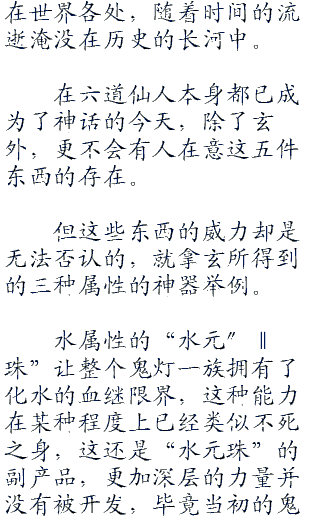 在世界各处，随着时间的流
逝淹没在历史的长河中。
在六道仙人本身都已成
为了神话的今天，除了玄
外，更不会有人在意这五件
东西的存在。
但这些东西的威力却是
无法否认的，就拿玄所得到
的三种属性的神器举例。
水属性的“水元″‖
珠”让整个鬼灯一族拥有了
化水的血继限界，这种能力
在某种程度上已经类似不死
之身，这还是“水元珠”的
副产品，更加深层的力量并
没有被开发，毕竟当初的鬼